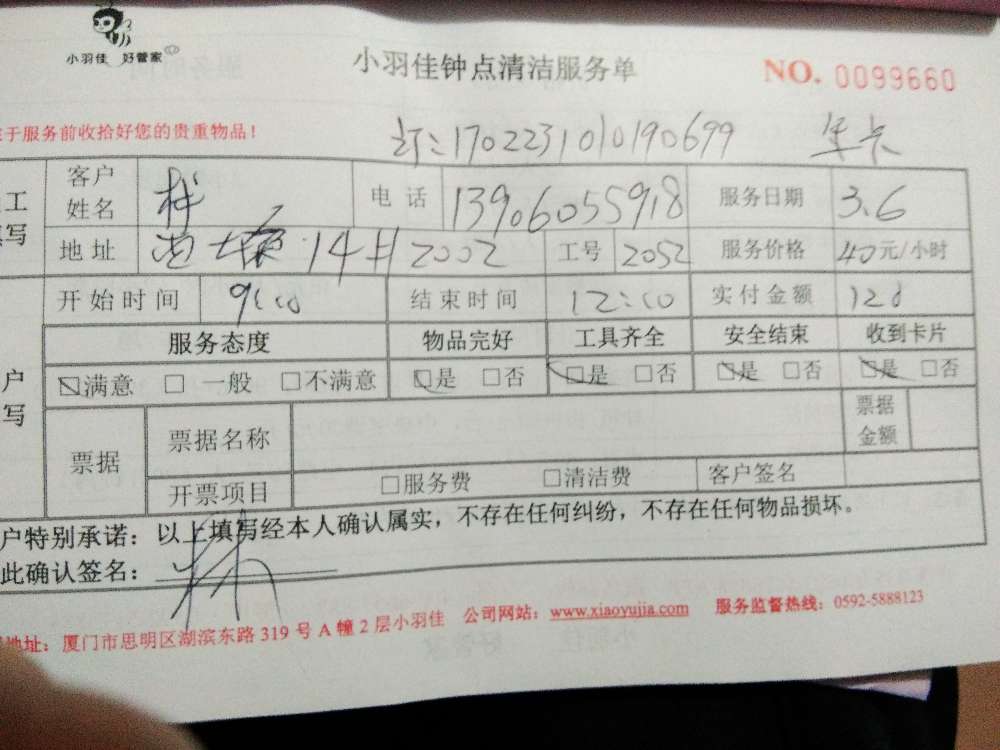 小羽佳 好管家
小羽佳钟点清洁服务单 NO. 0099660
于服务前收拾好您的贵重物品!
订:1702231010190699 年卡
工 写
客户姓名 林 电话 13906055918 服务日期 3.6
地址 14# 2002 工号 2052 服务价格 40元/小时
户 写
开始时间 9:00 结束时间 12:00 实付金额 120
服务态度 物品完好 工具齐全 安全结束 收到卡片
☑满意 □一般 □不满意 ☑是 □否 ☑是 □否 ☑是 □否 ☑是 □否
票据 票据名称 票据金额
开票项目 □服务费 □清洁费 客户签名
户特别承诺:以上填写经本人确认属实,不存在任何纠纷,不存在任何物品损坏。
此确认签名:林
地址:厦门市思明区湖滨东路 319 号 A 幢 2 层小羽佳 公司网站:www.xiaoyujia.com 服务监督热线:0592-5888123